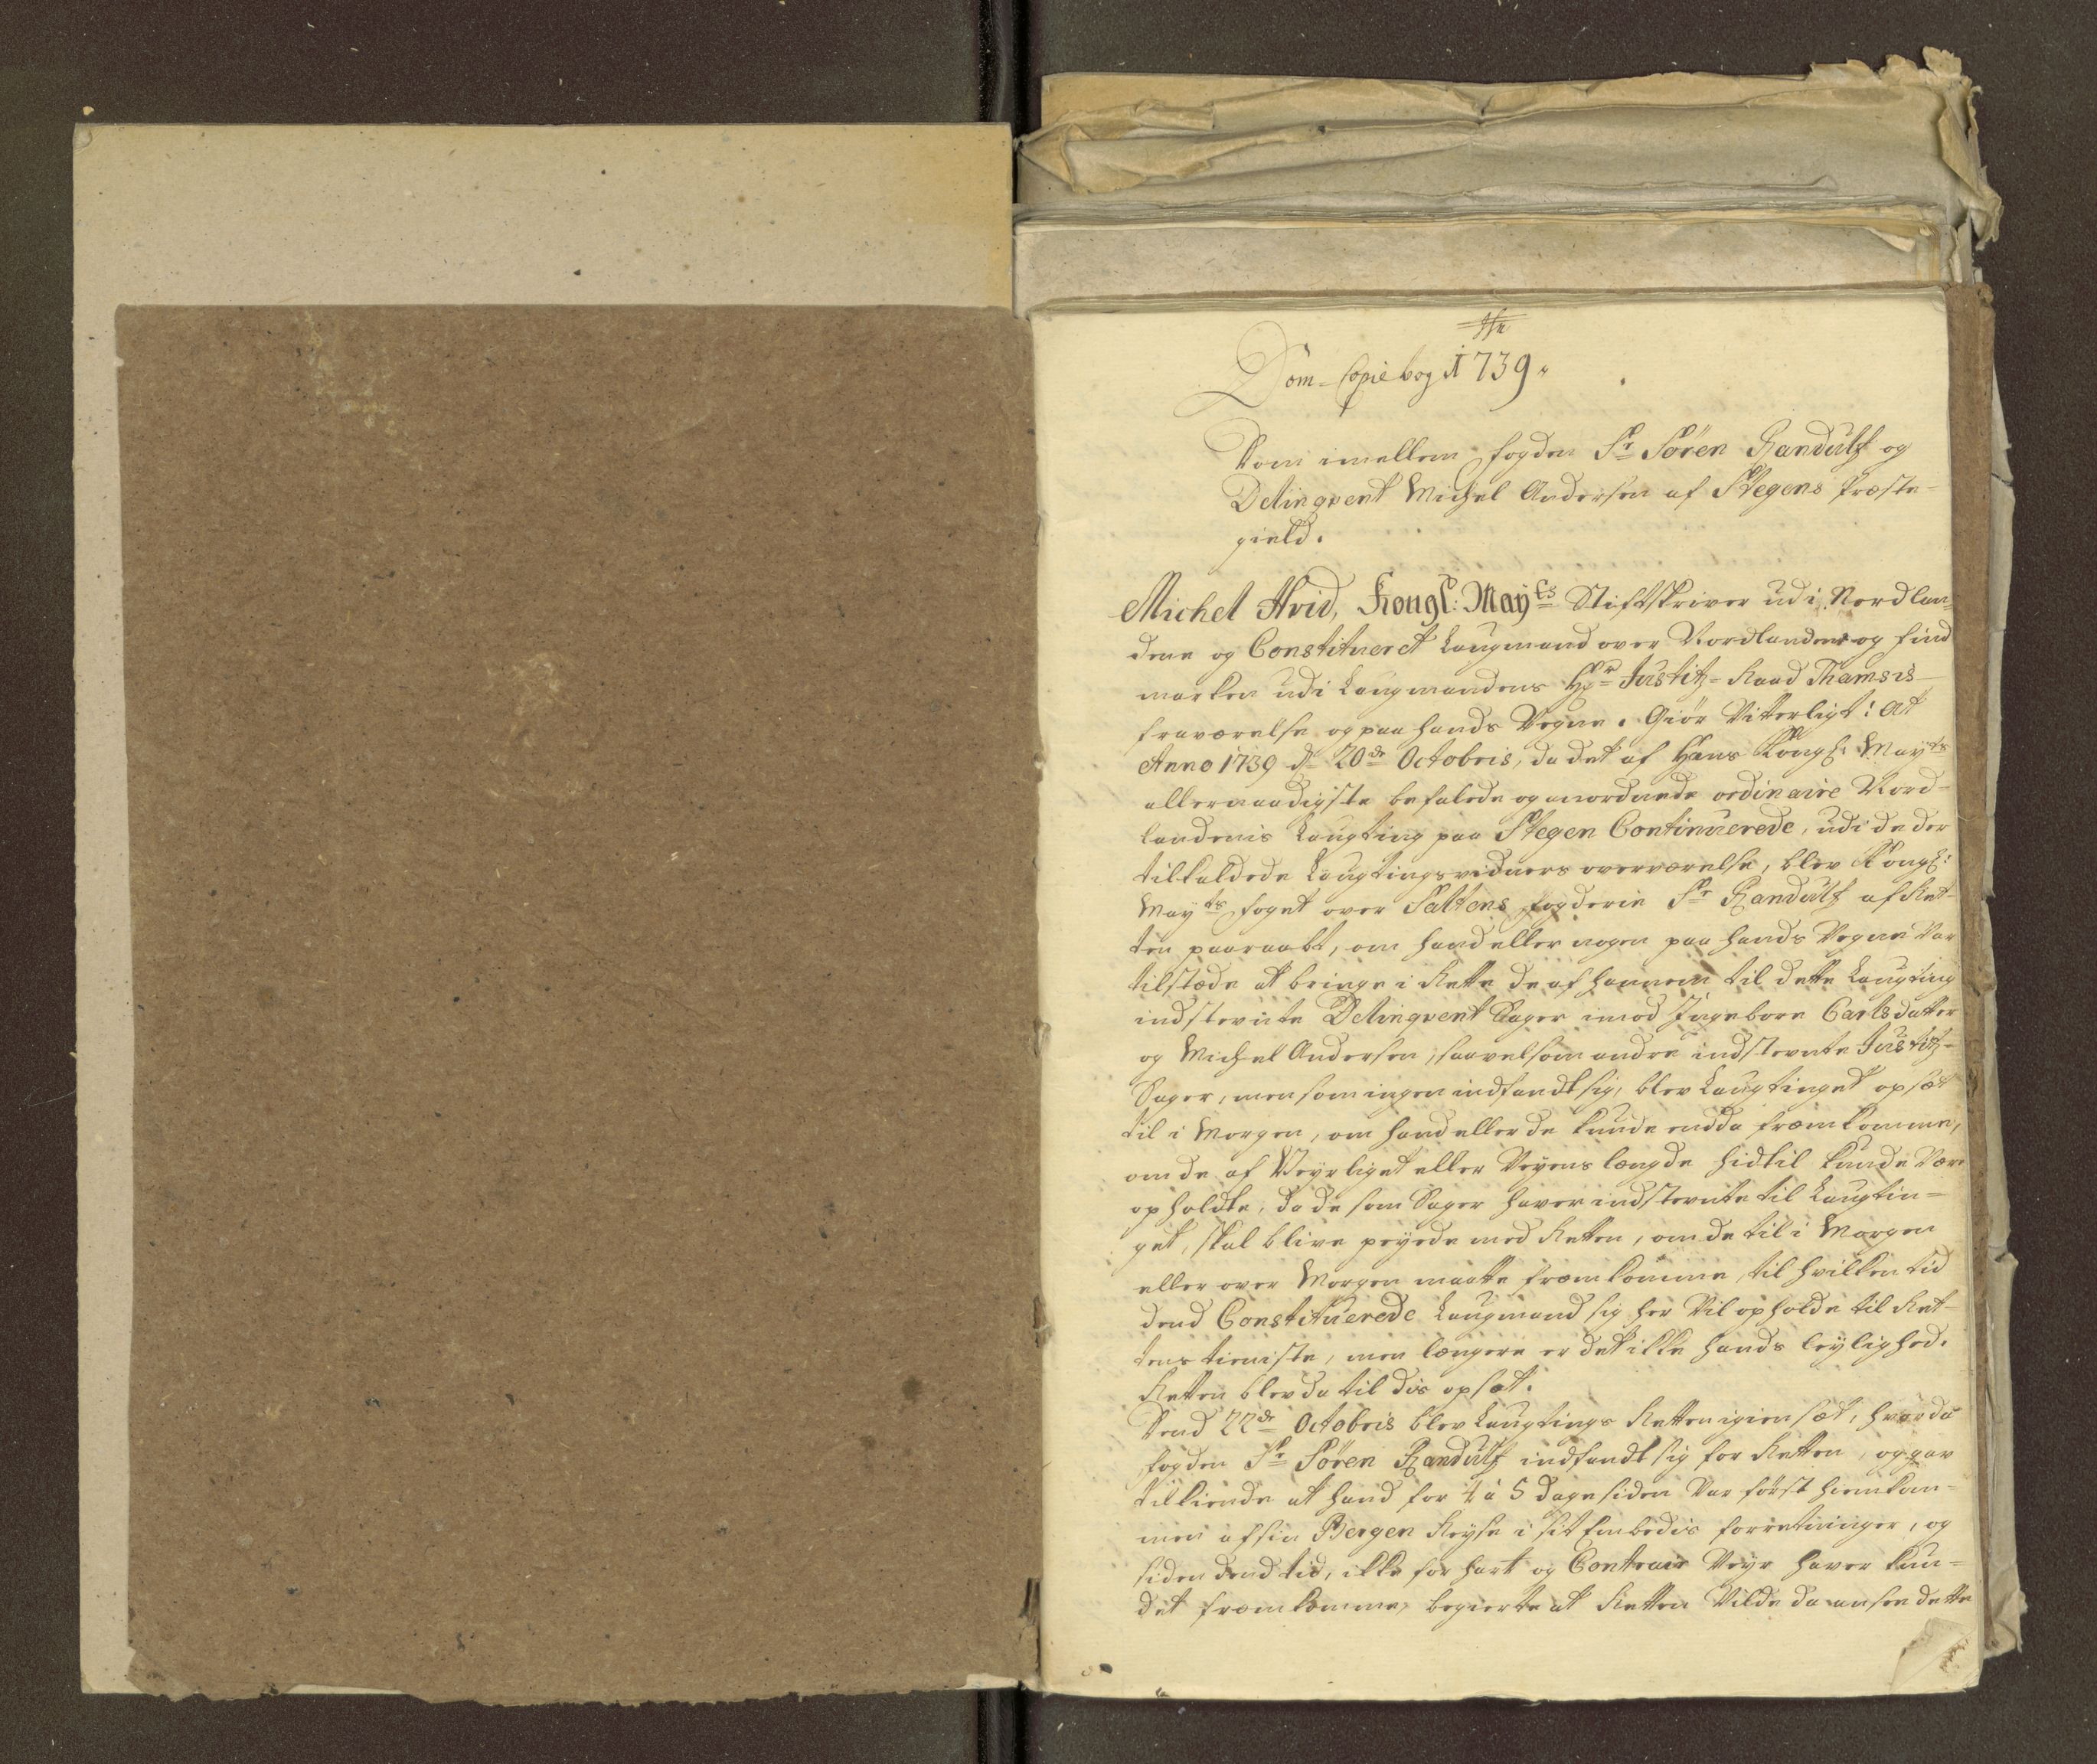 Dom-Copiebog 1739.
Dom imellem fogden Sr Søren Randulf og
Delinqvent Michel Andersen af Stegens Præste-
gield.
Michel Hvid, Kongl: Mayts Stiftskriver udi Nordlan-
dene og Constitueret Laugmand over Nordlandene og Find
marken udi Laugmandens Hr Justitz-Raad Thamsis
fraværelse og paa hands Vegne. Giør Vitterligt: At
Anno 1739 d 20de Octobris, da det af Hans Kongl. Mayts
allernaadigste befalede og anordnede ordinaire Nord-
landenis Laugting paa Stegen Continuerede, udi de der
tilkaldede Laugtingsvidners overværelse, blev Kongl:
Mayts foget over Saltens fogderie Sr Randulf af Ret-
ten paaraabt, om hand eller nogen paa hands Vegne Var
tilstæde at bringe i Rette de af hannem til dette Laugting
indstevnte Delinqvent Sager imod Ingebore Carlsdatter
og Michel Andersen, saavelsom andre indstevnte Justitz-
Sager, men som ingen indfandt sig, blev Laugtinget opsæt
til i Morgen, om hand eller de kunde endda fremkomme,
om de af Veyrliget eller Veyens længde hidtil kunde Være
opholdte, da de som Sager haver indstevnte til Laugtin-
get, skal blive peyede med Retten, om de til i Morgen
eller over Morgen maatte fremkomme, til hvilken tid
dend Constituerede Laugmand sig her Vil opholde til Ret-
tens tieniste, men længere er det ikke hands leylighed.
Retten blev da til dis opsat.
Dend 22de Octobris blev Laugtings Retten igien sæt, hvor da
fogden Sr Søren Randulf indfandt sig for Retten, og gav
tilkiende at hand for 4 à 5 dage siden Var først hiemkom-
men af sin Bergen Reyse i sit Embedis forretninger, og
siden dend tid, ikke for hart og Contrair Veyr haver kun-
det fremkomme, begierte at Retten Vilde da ansee dette